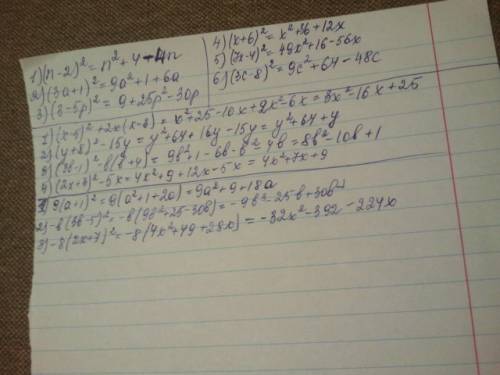 1) (n-2)² = n²+4-4n
2) (3a+1)² = 9a²+1+6a
3) (3-5p)² = 9+25p²-30p
4) (x+6)² = x²+36+12x
5) (7x-4)² = 49x²+16-56x
6) (3c-8)² = 9c²+64-48c
1) (x-5)²+2x(x-3) = x²+25-10x+2x²-6x = 3x²-16x+25
2) (y+8)²-15y = y²+64+16y-15y = y²+64+y
3) (3b-1)²-b(b+4) = 9b²+1-6b-b²-4b = 8b²-10b+1
4) (2x+3)²-5x = 4x²+9+12x-5x = 4x²+7x+9
1) 9(a+1)² = 9(a²+1+2a) = 9a²+9+18a
2) -b(3b-5)² = -b(9b²+25-30b) = -9b³-25b+30b²
3) -8(2x+7)² = -8(4x²+49+28x) = -32x²-392-224x